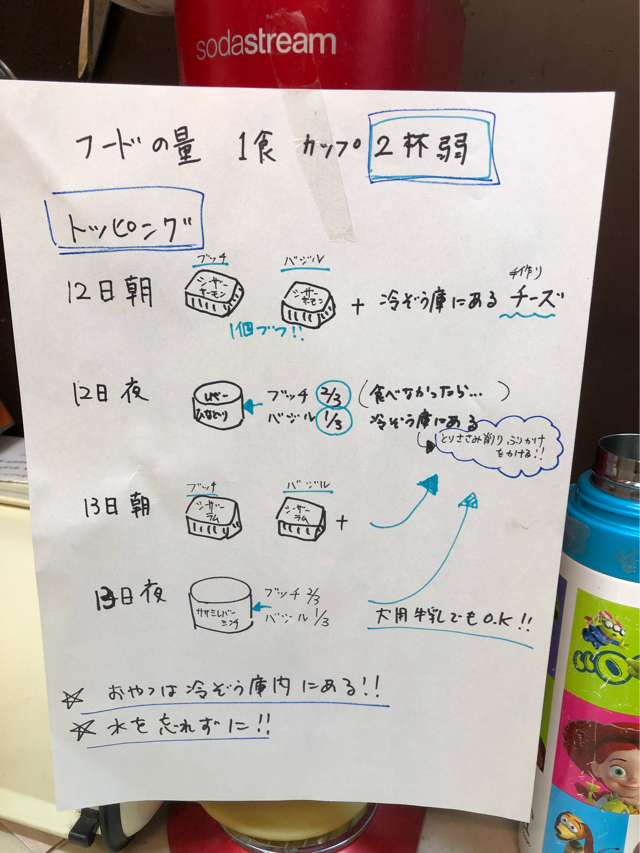 sodastream
フードの量 1食 カップ 2杯弱
トッピング
12日朝
ブッチ
シーザー
サーモン
バジル
シーザー
サーモン
1個ずつ!!
+ 冷ぞう庫にある 手作り チーズ
12日夜
レバー
ひなどり
ブッチ 2/3
バジル 1/3
(食べなかったら… )
冷ぞう庫にある
とりささみ削りふりかけ
をかける!!
13日朝
ブッチ
シーザー
ラム
バジル
シーザー
ラム
+
13日夜
ササミレバー
ミンチ
ブッチ 2/3
バジル 1/3
犬用牛乳でもO.K!!
☆ おやつは冷ぞう庫内にある!!
☆ 水を忘れずに!!